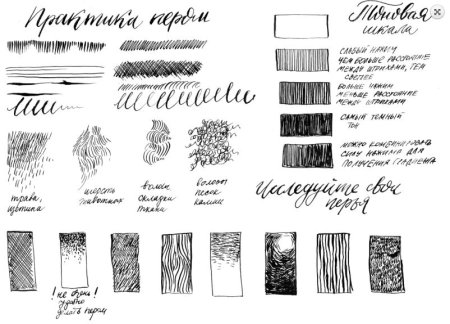 Практика пером
Тоновая
шкала
слабый нажим
чем больше расстояние
между штрихами, тем
светлее
больше нажим
меньше расстояние
между штрихами
самый темный
тон
можно комбинировать
силу нажима для
получения градиента
трава
щетина
шерсть
животных
волны
складки
ткани
волосы
песок
камни
Исследуйте свои
перья
! не очень !
удобно
делать пером